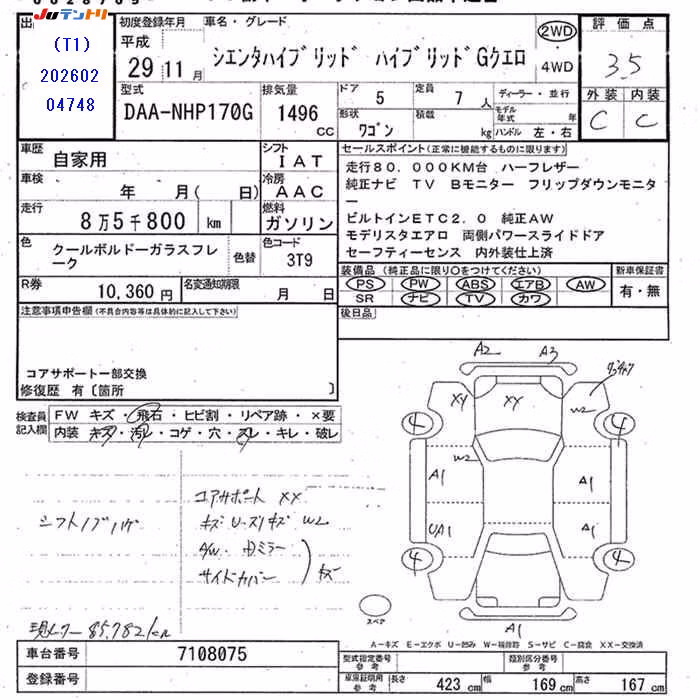 JUテントリ
出
(T1)
202602
04748
初度登録年月
車名・グレード
評価点
平成
29 11 月
シエンタハイブリッド ハイブリッドGクエロ
2WD
4WD
3.5
外装 内装
C C
型式
DAA-NHP170G
排気量
1496
CC
ドア
5
定員
7 人
ディーラー・並行
形状
ワゴン
積載
kg
モデル年式
年
ハンドル 左・右
車歴
自家用
シフト
IAT
車検
年 月 ( 日)
冷房
AAC
走行
8万5千800 km
燃料
ガソリン
色
クールボルドーガラスフレーク
色替
色コード
3T9
R券
10,360 円
名変通知期限
月 日
セールスポイント(正常に機能するものに限ります)
走行80,000KM台 ハーフレザー
純正ナビ TV Bモニター フリップダウンモニタ
ー
ビルトインETC2.0 純正AW
モデリスタエアロ 両側パワースライドドア
セーフティーセンス 内外装仕上済
装備品(純正品に限り○をつけてください)
新車保証書
PS PW ABS エアB AW
SR ナビ TV カワ
有・無
後日品
注意事項申告欄(不具合内容等は具体的に記入して下さい)
コアサポート一部交換
修復歴 有〔箇所 〕
検査員記入欄
FW キズ・飛石・ヒビ割・リペア跡・×要
内装 キズ・汚レ・コゲ・穴・スレ・キレ・破レ
コアサポート XX
キズ U-ズリキズ W2
A/W
ミラー
サイドカバー
キズ
シフトノブ
現メーター 85,782km
A2 A3
XY XX W2
W2
4 4
A1 A1
UA1 A1
4 4
A1
スペア
A-キズ E-エクボ U-凹み W-補修跡 S-サビ C-腐食 XX-交換済
車台番号
7108075
登録番号
型式指定番号
参考
類別区分番号
参考
車庫証明用
参考
長さ
423 cm
幅
169 cm
高さ
167 cm